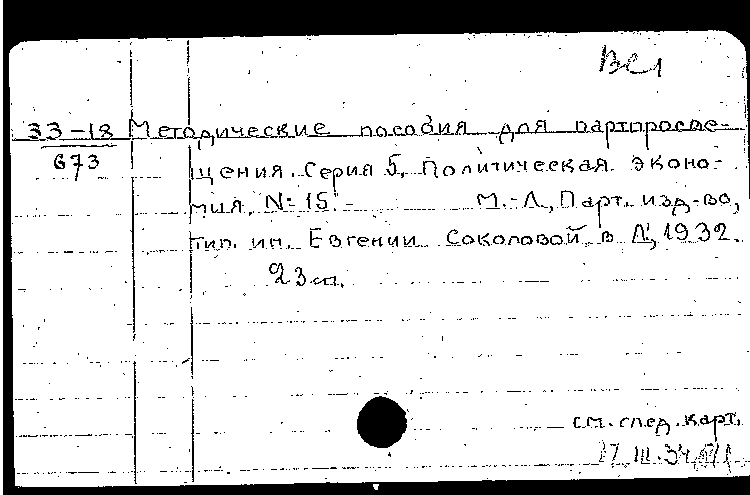 ВС1
33-18 Методические пособия для партпросве-
673 щения. Серия 5, Политическая эконо-
мия. N=15. - М.-Л., Парт. изд-во,
тип. им. Евгении Соколовой, в Л., 1932.
23 см.
см. след. карт.
17.III.34